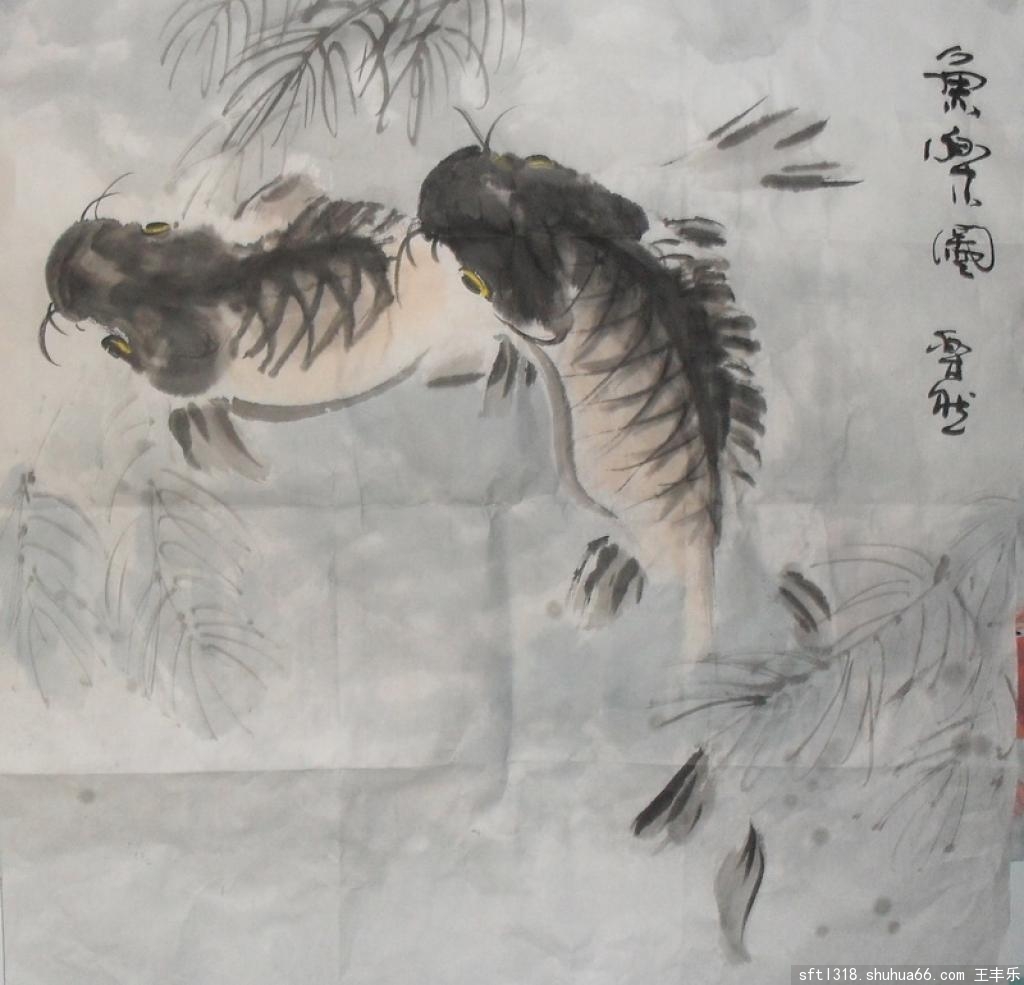 魚樂圖
sftl318.shuhua66.com 王丰乐